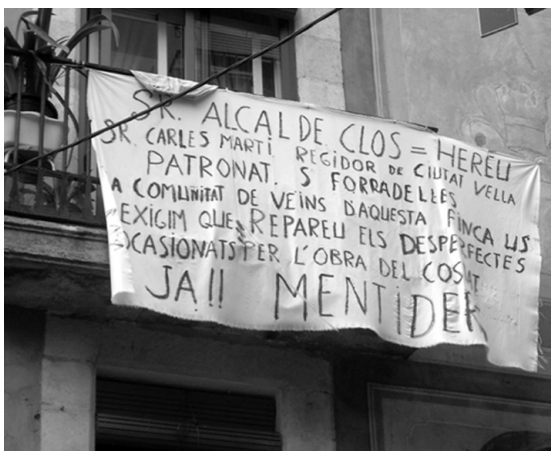 SR. ALCALDE CLOS = HEREU
SR. CARLES MARTÍ REGIDOR DE CIUTAT VELLA
PATRONAT. S FORRADELLES
A COMUNITAT DE VEÏNS D'AQUESTA FINCA US
EXIGIM QUE REPAREU ELS DESPERFECTES
OCASIONATS PER L'OBRA DEL
JA!! MENTIDER